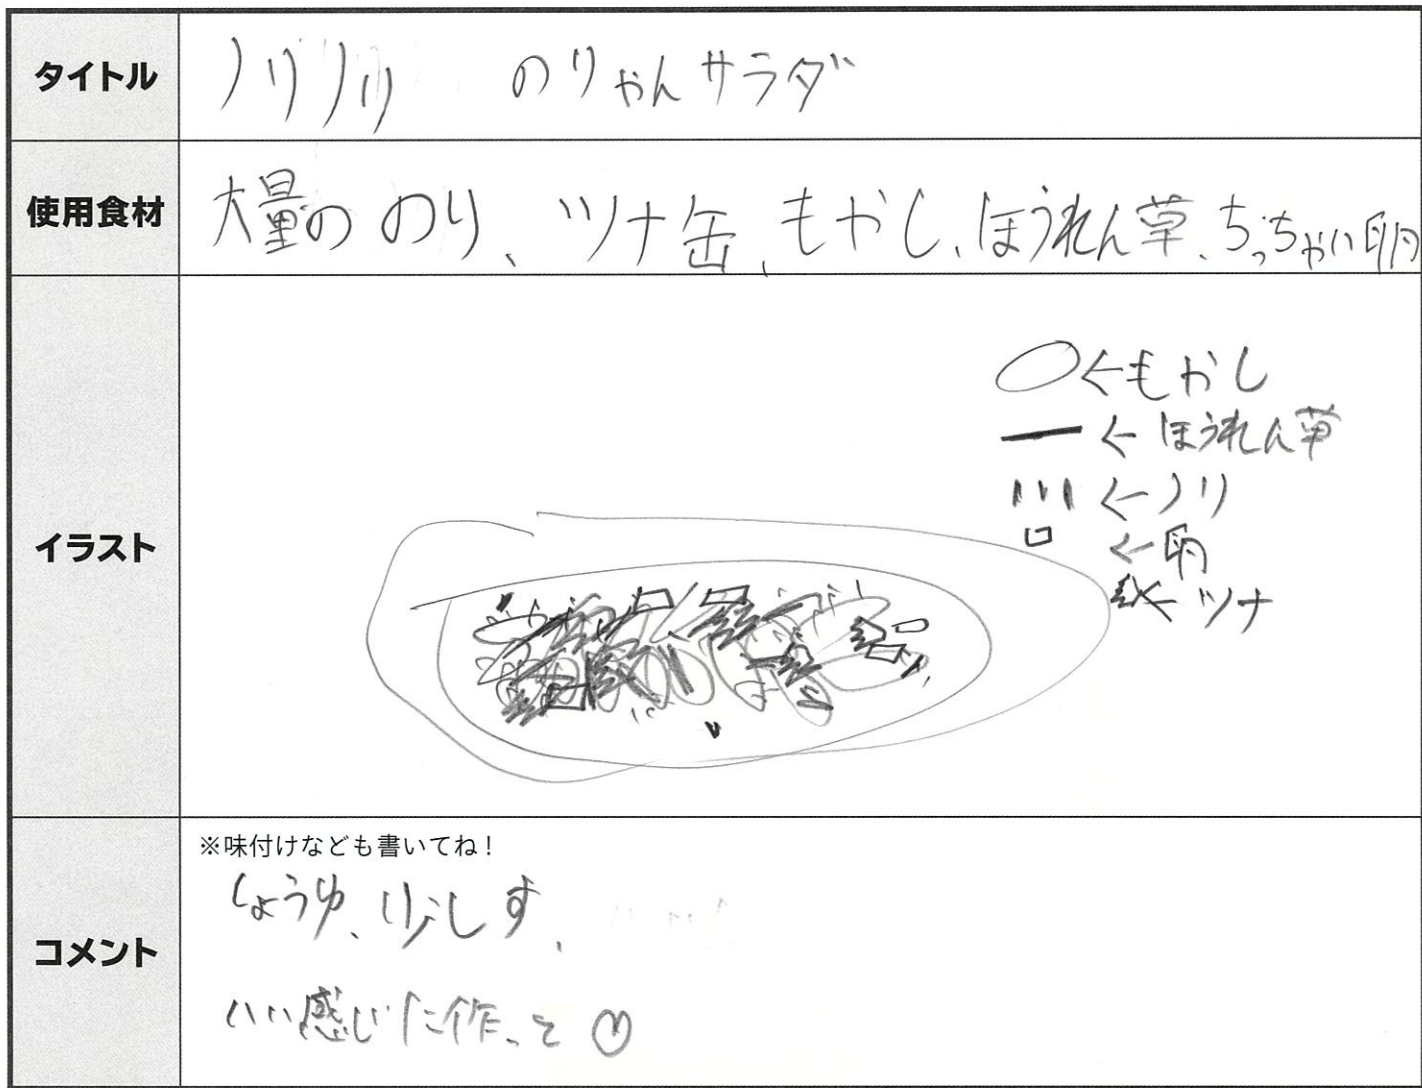 タイトル
ノリノリ のりやんサラダ
使用食材
大量の のり、ツナ缶、もやし、ほうれん草、ちっちゃい卵
イラスト
←もやし
←ほうれん草
←ノリ
←卵
←ツナ
コメント
※味付けなども書いてね!
しょうゆ、少しす、
いい感じに作って♡